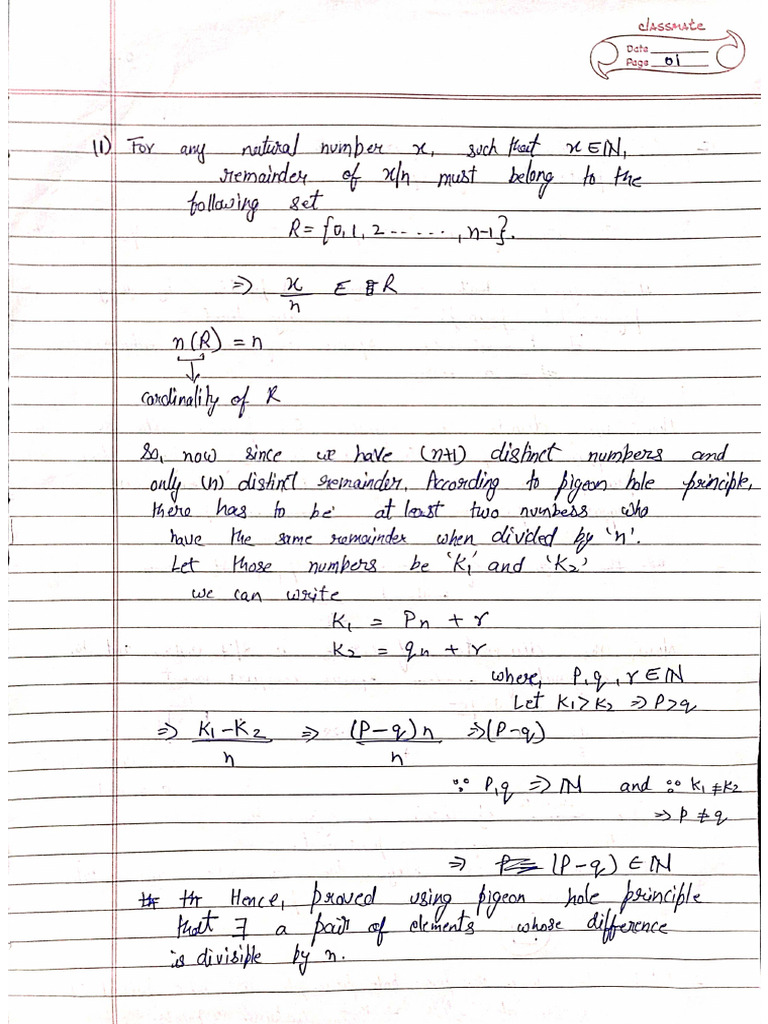 classmate
Date
Page 01
11) For any natural number x, such that x ∈ ℕ,
remainder of x/n must belong to the
following set
R = {0, 1, 2 ------, n-1}.
⇒ x/n ∈ R
n(R) = n
↓
cardinality of R
So, now since we have (n+1) distinct numbers and
only (n) distinct remainder. According to pigeon hole principle,
there has to be at least two numbers who
have the same remainder when divided by 'n'.
Let those numbers be 'K₁' and 'K₂'
we can write
K₁ = Pn + r
K₂ = qn + r
where, P, q, r ∈ ℕ
Let K₁ > K₂ ⇒ P > q
⇒ (K₁ - K₂)/n ⇒ (P - q)n/n ⇒ (P - q)
∵ P, q ⇒ ℕ and ∵ K₁ ≠ K₂
⇒ P ≠ q
⇒ (P - q) ∈ ℕ
Hence, proved using pigeon hole principle
that ∃ a pair of elements whose difference
is divisible by n.